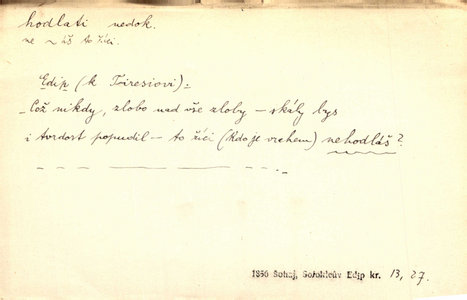 hodlati nedok.
ne ~ áš to říci.
Edip (k Tiresiovi):
– Což nikdy, zlobo nad vše zloby – skály bys
i tvrdost popudil – to říci (kdo je vrahem) nehodláš?
1856 Šohaj, Sofokleův Edip kr. 13, 27.